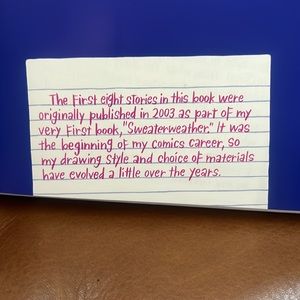 The First eight stories in this book were
originally published in 2003 as part of my
very First book, "Sweaterweather." It was
the beginning of my comics career, so
my drawing style and choice of materials
have evolved a little over the years.